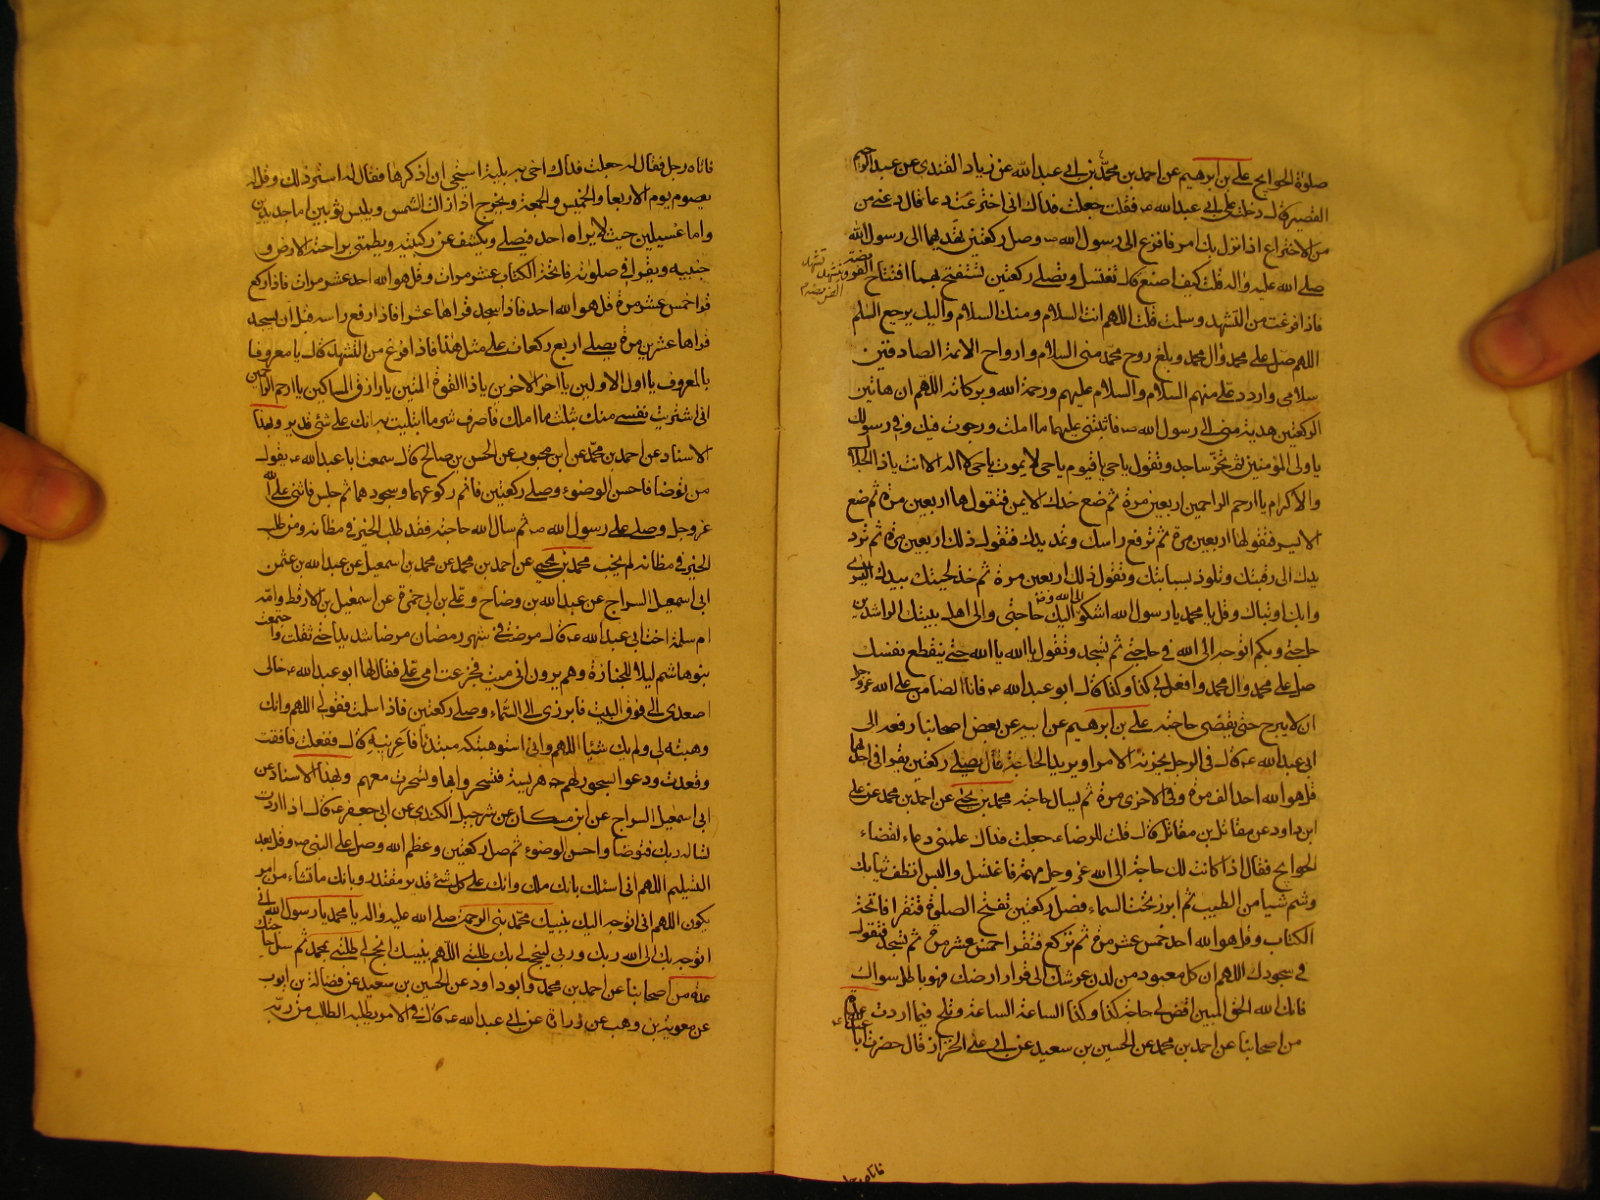 صلوة الحوايج علي بن ابرهيم عن احمد بن محمد بن ابى عبد الله عن زياد القندى عن عبد الرحيم
القصير قال دخلت على ابى عبد الله ع فقلت جعلت فداك انى اخترعت دعا قال دعنى من
من الاختراع اذا نزل بك امر فافزع الى رسول الله ص وصل ركعتين تهديهما الى رسول الله
صلى الله عليه واله قلت كيف اصنع قال تغتسل وتصلى ركعتين تستفتح بهما افتتاح الفريضة وتشهد تشهد الفريضة
فاذا فرغت من التشهد وسلمت قلت اللهم انت السلام ومنك السلام واليك يرجع السلم
اللهم صل على محمد وال محمد وبلغ روح محمد منى السلام وارواح الائمة الصادقين
سلامى واردد على منهم السلام والسلام عليهم ورحمة الله وبركاته اللهم ان هاتين
الركعتين هدية منى الى رسول الله ص فاثبتنى عليهما ما املت ورجوت فيك وفى رسولك
ياولى المؤمنين ثم تخر ساجدا وتقول ياحى ياقيوم ياحى لا يموت ياحى لا اله الا انت ياذا الجلال
والاكرام يا ارحم الراحمين اربعين مرة ثم ضع خدك الايمن فتقولها اربعين مرة ثم ضع
الايسر فتقولها اربعين مرة ثم ترفع راسك وتمد يدك فتقول ذلك اربعين مرة ثم ترد
يدك الى رقبتك وتلوذ بسبابتك وتقول ذلك اربعين مرة ثم خذ لحيتك بيدك اليسرى
وابك او تباك وقل يا محمد يا رسول الله اشكو الى الله واليك حاجتى والى اهل بيتك الراشدين
حاجتى وبكم اتوجه الى الله فى حاجتى ثم تسجد وتقول يا الله يا الله حتى ينقطع نفسك
صل على محمد وال محمد وافعل بى كذا وكذا قال ابو عبد الله ع فانا الضامن على الله عز وجل
ان لا يبرح حتى يقضى حاجته علي بن ابرهيم عن ابيه عن بعض اصحابنا رفعه الى
ابى عبد الله ع قال فى الرجل يحزنه الامر او يريد الحاجة قال يصلى ركعتين يقرا فى احدهما
قل هو الله احد الف مرة وفى الاخرى مرة ثم يسال حاجته محمد بن يحيى عن احمد بن محمد عن على
ابن داود عن مقاتل بن مقاتل قال قلت للرضا ع جعلت فداك علمنى دعاء لقضاء
الحوايج فقال اذا كانت لك حاجة الى الله عز وجل مهمة فاغتسل والبس انظف ثيابك
وشم شيا من الطيب ثم ابرز تحت السماء فصل ركعتين تفتح الصلوة فتقرا فاتحة
الكتاب وقل هو الله احد خمس عشر مرة ثم تركع فتقرا خمس عشر مرة ثم تسجد فتقول
فى سجودك اللهم ان كل معبود من لدن عرشك الى قرار ارضك فهو باطل سواك
فانك الله الحق المبين اقض لى حاجة كذا وكذا الساعة الساعة وتلح فيما اردت عدة
من اصحابنا عن احمد بن محمد عن الحسين بن سعيد عن ابى على الخزاز قال حضرت ابا عبد الله ع
فاتاه رجل
فاتاه رجل فقال له جعلت فداك اخى به بلية استحى ان اذكرها فقال له استر ذلك وقل له
يصوم يوم الاربعا والخميس والجمعة ويخرج اذا زالت الشمس ويلبس ثوبين اما جديدين
واما غسيلين حيث لا يراه احد فيصلى ويكشف عن ركبتيه ويتمطى براحتيه الارض و
جنبيه ويقرا فى صلوته فاتحة الكتاب عشر مرات وقل هو الله احد عشر مرات فاذا ركع
قرا خمس عشر مرة قل هو الله احد فاذا سجد قراها عشرا فاذا رفع راسه قبل ان يسجد
قراها عشرين مرة يصلى اربع ركعات على مثل هذا فاذا فرغ من التشهد قال يا معروفا
بالمعروف يا اول الاولين يا اخر الاخرين ياذا القوة المتين يا رازق المساكين يا ارحم الراحمين
انى اشتريت نفسى منك بثلث ما املك فاصرف شر ما ابتليت به انك على شئ قدير وبهذا
الاسناد عن احمد بن محمد عن ابن محبوب عن الحسن بن صالح قال سمعت ابا عبد الله ع يقول
من توضا فاحسن الوضوء وصلى ركعتين فاتم ركوعهما وسجودهما ثم جلس فاثنى على الله
عز وجل وصلى على رسول الله ص ثم سال الله حاجته فقد طلب الخير فى مظانه ومن طلب
الخير فى مظانه لم يخب محمد بن يحيى عن احمد بن محمد عن محمد بن اسمعيل عن عبد الله بن عثمن
ابى اسمعيل السراج عن عبد الله بن وضاح وعلى بن ابى حمزة عن اسمعيل بن الارقط وامه
ام سلمة اخت ابى عبد الله ع قال مرضت فى شهر رمضان مرضا شديدا حتى ثقلت واجتمعت
بنو هاشم ليلا للجنازة وهم يرون انى ميت فجزعت امى على فقال لها ابو عبد الله ع خالى
اصعدى الى فوق البيت فابرزى الى السماء وصلى ركعتين فاذا سلمت فقولى اللهم انك
وهبته لى ولم يك شيئا اللهم وانى استوهبتكه مبتدئا فاعرنيه قال ففعلت فافقت
وقعدت ودعوا بسحور لهم هريسة فتسحروا بها وتسحرت معهم وبهذا الاسناد عن
ابى اسمعيل السراج عن ابن مسكان عن شرحبيل الكندى عن ابى جعفر ع قال اذا اردت
تساله ربك فتوضا واحسن الوضوء ثم صل ركعتين وعظم الله وصل على النبى ص وقل بعد
التسليم اللهم انى اسئلك بانك ملك وانك على كل شئ قدير مقتدر وبانك ما تشاء من امر
يكون اللهم انى اتوجه اليك بنبيك محمد نبى الرحمة صلى الله عليه واله يا محمد يا رسول الله انى
اتوجه بك الى الله ربك وربى لينجح لى بك طلبتى اللهم بنبيك انجح لى طلبتى بمحمد ثم سل حاجتك
عدة من اصحابنا عن احمد بن محمد وابو داود عن الحسين بن سعيد عن فضالة بن ايوب
عن معوية بن وهب عن زرارة عن ابى عبد الله ع قال فى الامر يطلبه الطالب من ربه